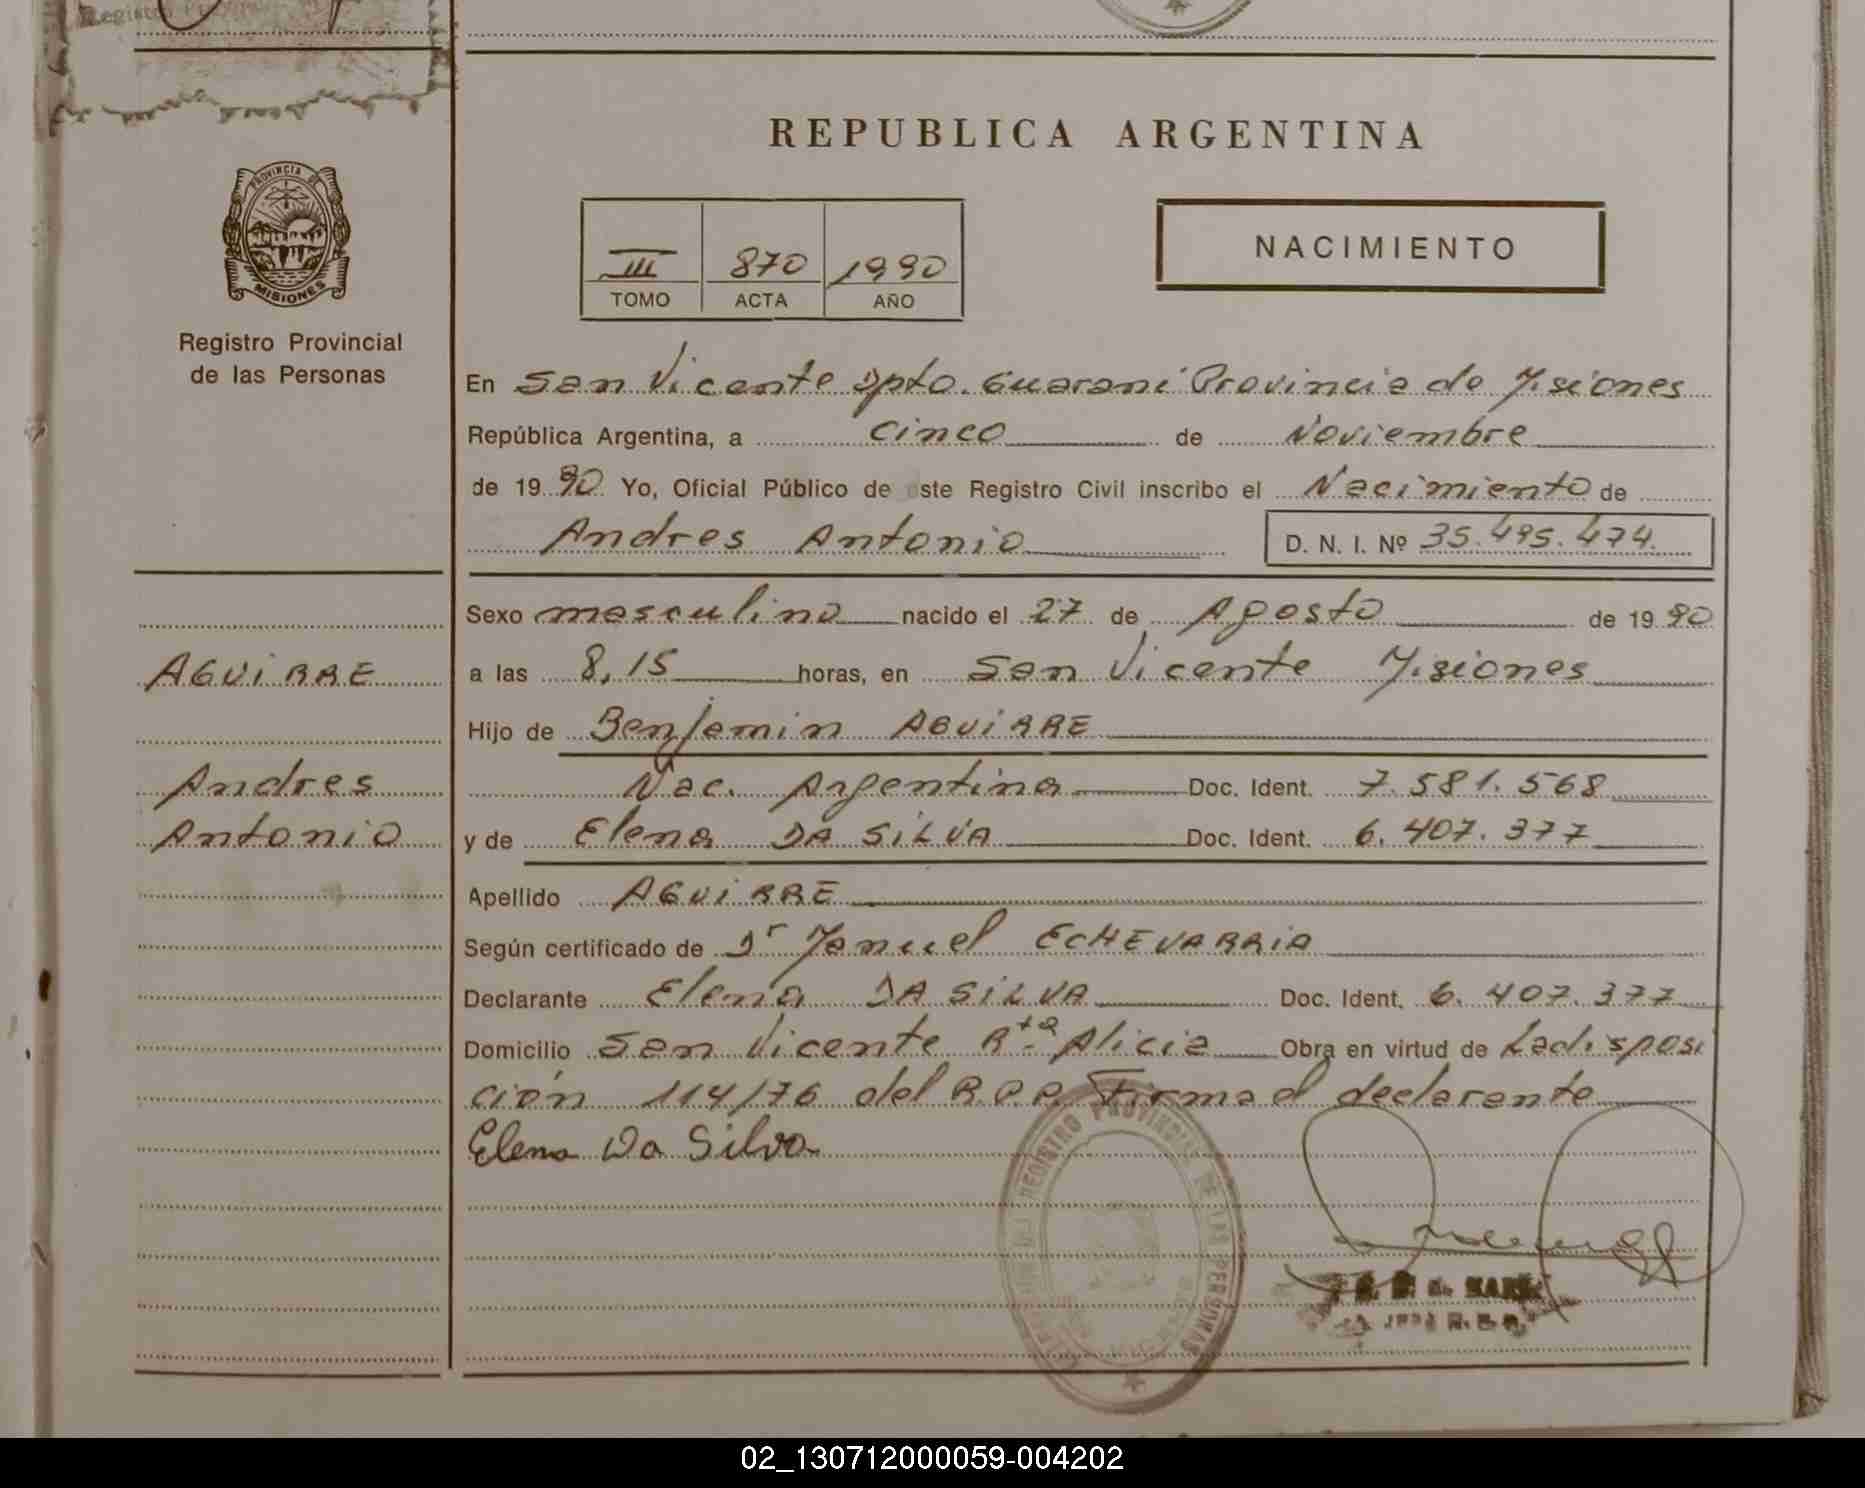 REPUBLICA ARGENTINA
PROVINCIA DE
MISIONES
Registro Provincial
de las Personas
III 870 1990
TOMO ACTA AÑO
NACIMIENTO
En San Vicente Dpto. Guarani Provincia de Misiones
República Argentina, a cinco de Noviembre
de 1990 Yo, Oficial Público de este Registro Civil inscribo el Nacimiento de
Andres Antonio D. N. I. Nº 35.495.474.
Sexo masculino nacido el 27 de Agosto de 1990
AGUiRRE
a las 8,15 horas, en San Vicente Misiones
Hijo de Benjamin AGUiRRE
Andres
Nac. Argentina Doc. Ident. 7.581.568
Antonio
y de Elena DA SiLVA Doc. Ident. 6.407.377
Apellido AGUiRRE
Según certificado de Dr Manuel ECHEVARRiA
Declarante Elena DA SiLVA Doc. Ident. 6.407.377
Domicilio San Vicente Rta Alicia Obra en virtud de La disposi
ción 114/76 del R.P.P. Firma el declarante
Elena Da Silva
REGISTRO PROVINCIAL DE LAS PERSONAS
02_130712000059-004202